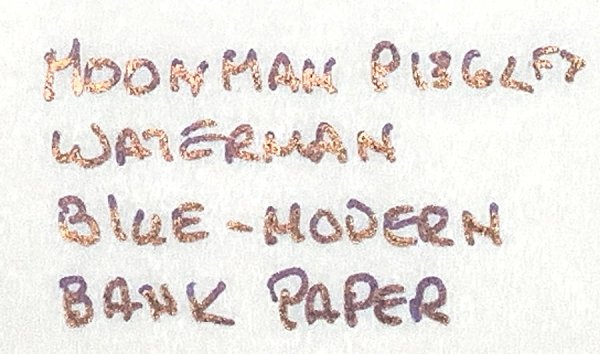 MOONMAN PIGLET
WATERMAN
BLUE - MODERN
BANK PAPER